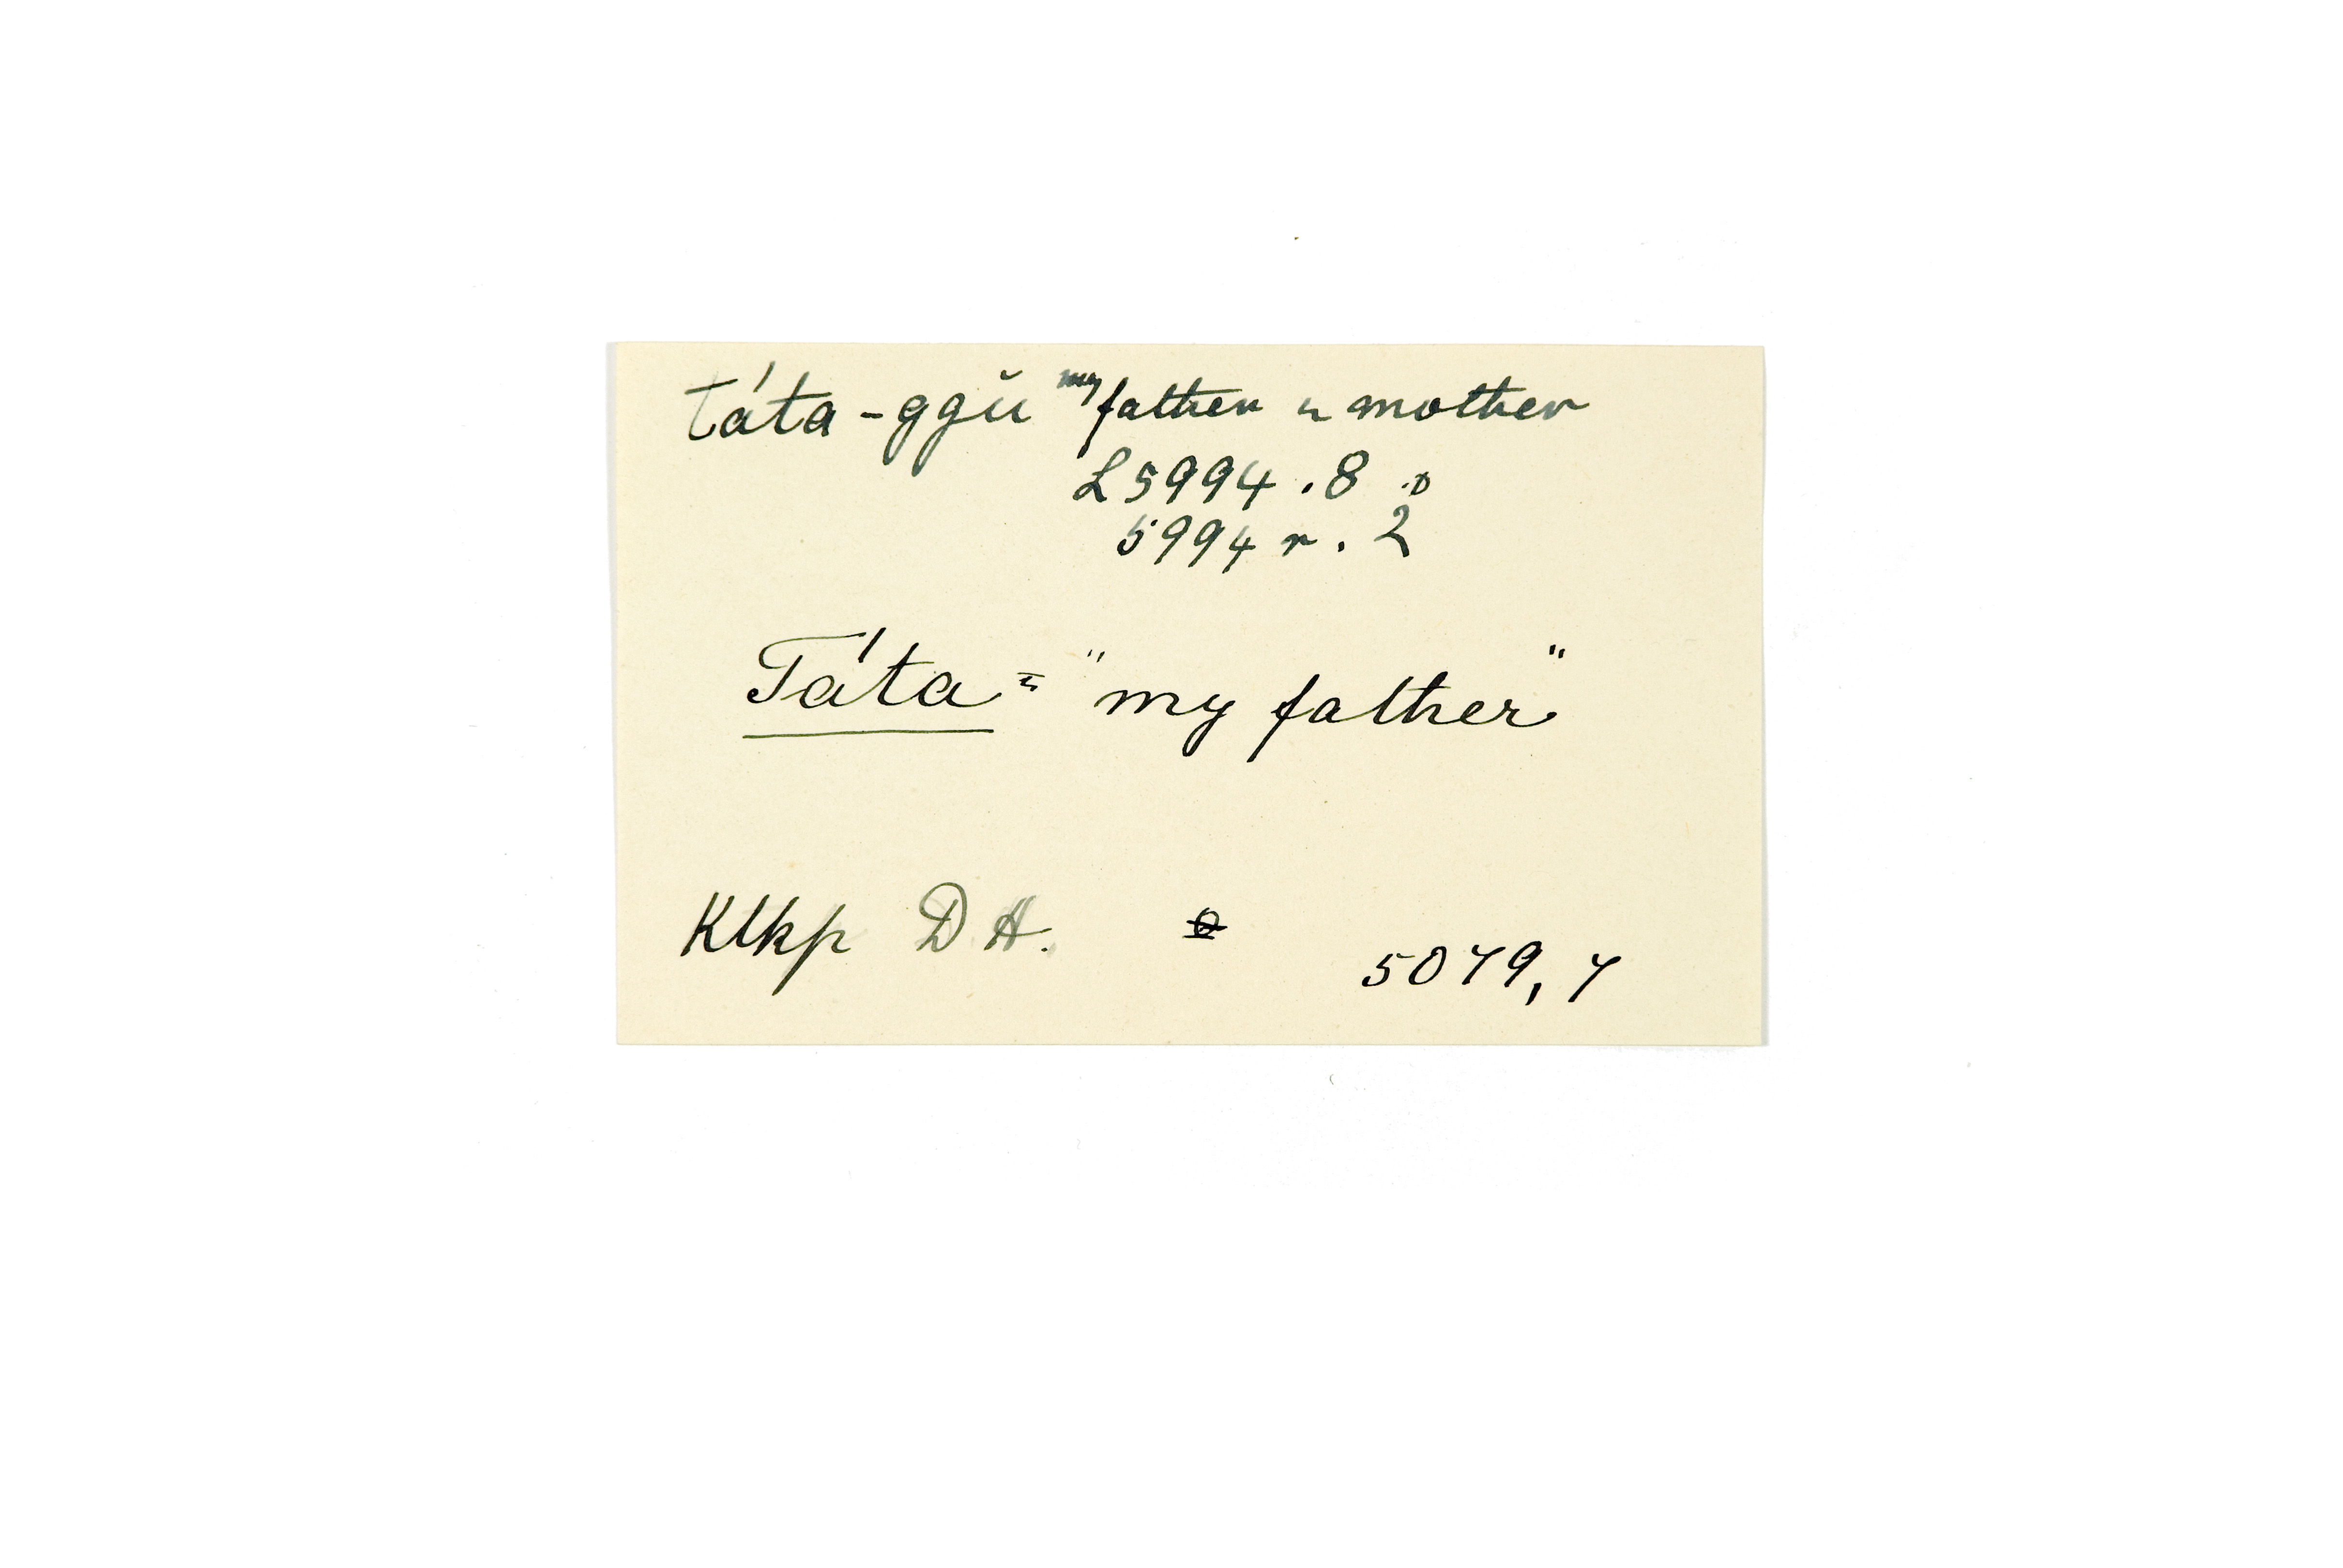 táta-ggŭ my father u mother
L5994.8
5994 r. 2
Táta = "my father"
Klkp D H.
5079, 7